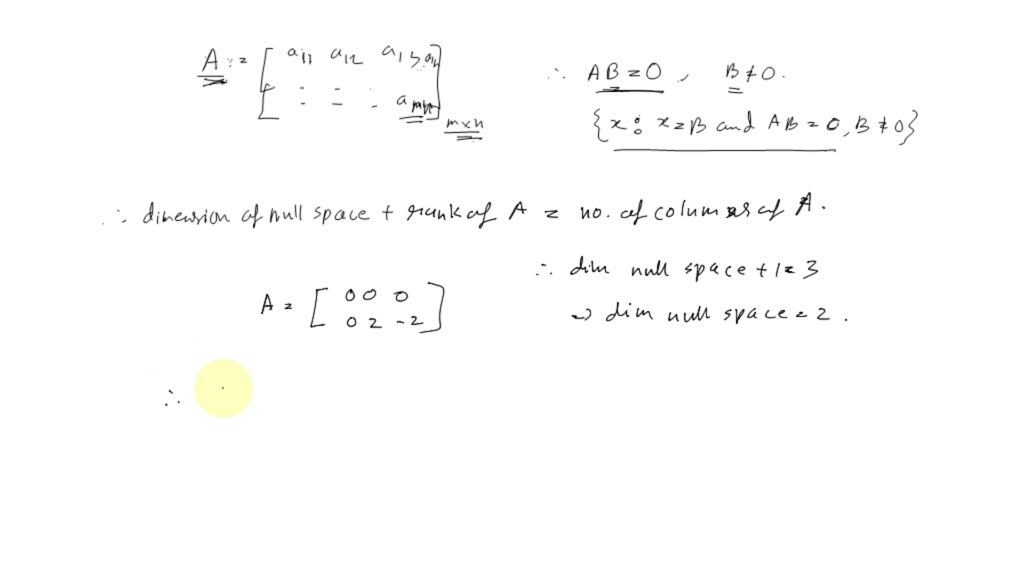 A := [ a11 a12 a13 a1n
: = : amn ] m×n
∴ AB = 0 , B ≠ 0.
{ x : x = B and AB = 0, B ≠ 0 }
∴ dimension of null space + rank of A = no. of columns of A.
A = [ 0 0 0
0 2 -2 ]
∴ dim null space + 1 = 3
⇒ dim null space = 2 .
∴